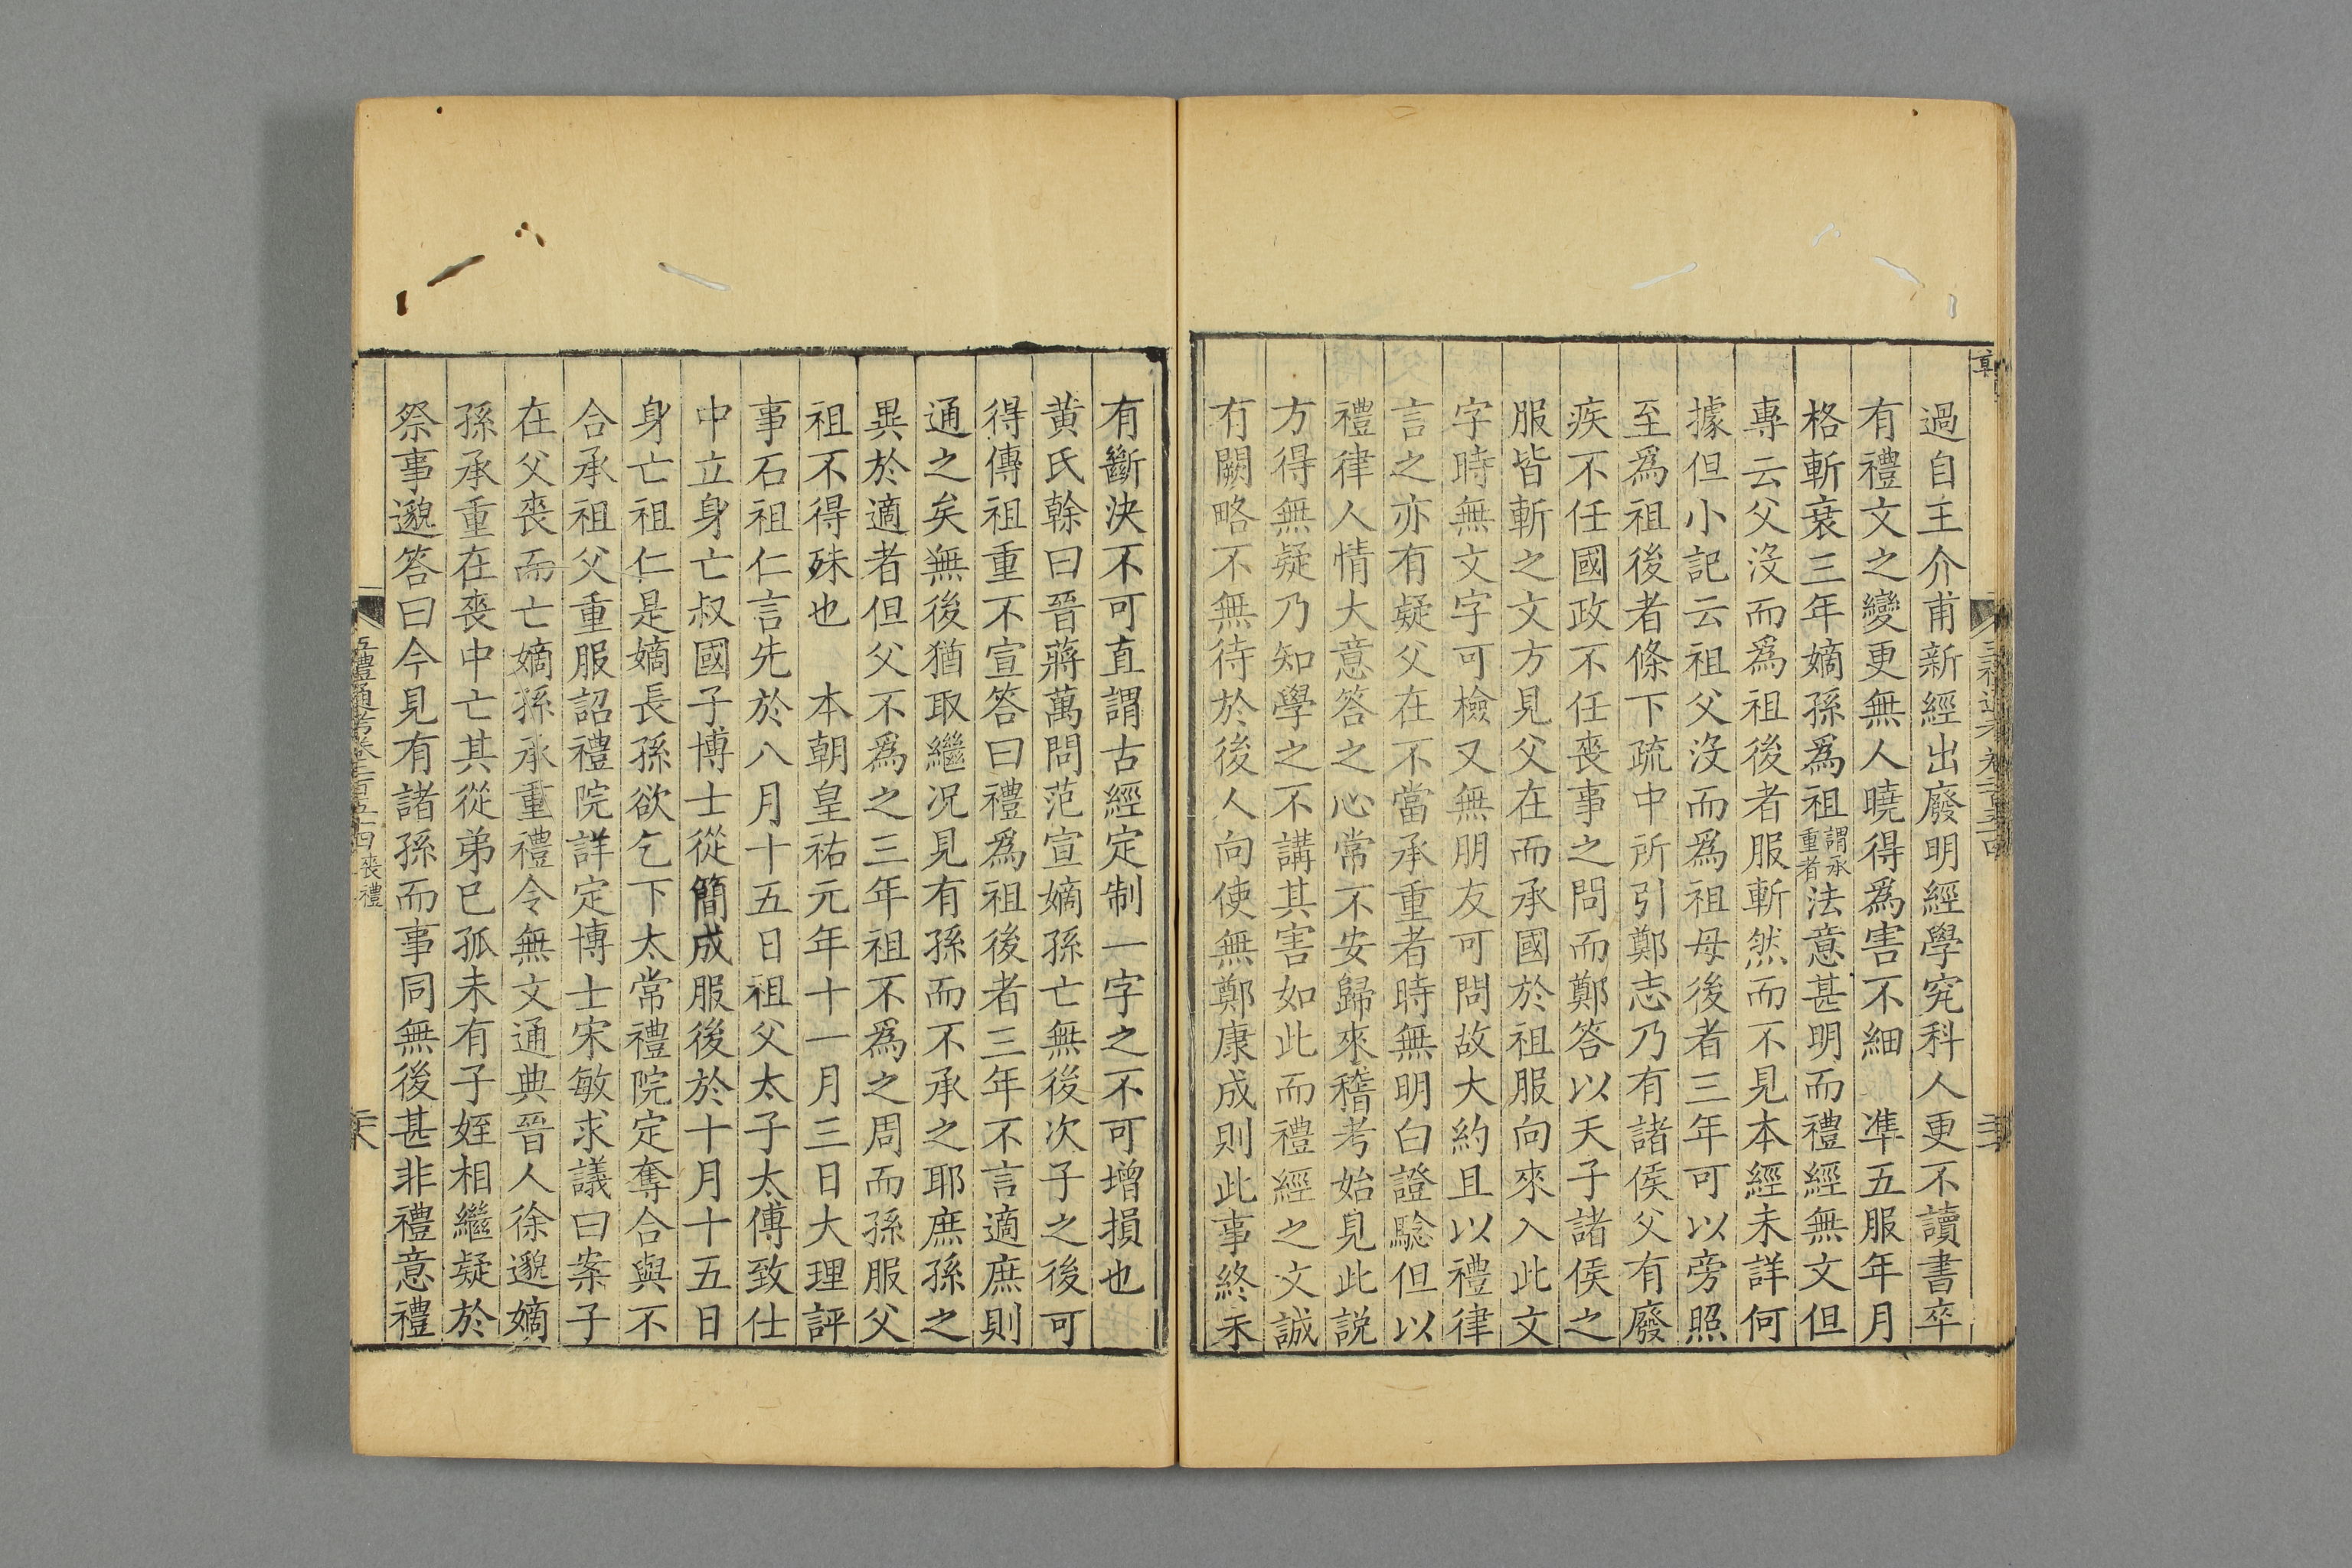 過自王介甫新經出廢明經學究科人更不讀書卒
有禮文之變更無人曉得爲害不細　準五服年月
格斬衰三年嫡孫爲祖謂承重者法意甚明而禮經無文但
專云父沒而爲祖後者服斬然而不見本經未詳何
據但小記云祖父沒而爲祖母後者三年可以旁照
至爲祖後者條下疏中所引鄭志乃有諸侯父有廢
疾不任國政不任喪事之問而鄭答以天子諸侯之
服皆斬之文方見父在而承國於祖服向來入此文
字時無文字可檢又無朋友可問故大約且以禮律
言之亦有疑父在不當承重者時無明白證驗但以
禮律人情大意答之心常不安歸來稽考始見此説
方得無疑乃知學之不講其害如此而禮經之文誠
有闕略不無待於後人向使無鄭康成則此事終未
有斷決不可直謂古經定制一字之不可增損也
黄氏榦曰晉蔣萬問范宣嫡孫亡無後次子之後可
得傳祖重不宣答曰禮爲祖後者三年不言適庶則
通之矣無後猶取繼況見有孫而不承之耶庶孫之
異於適者但父不爲之三年祖不爲之周而孫服父
祖不得殊也　本朝皇祐元年十一月三日大理評
事石祖仁言先於八月十五日祖父太子太傅致仕
中立身亡叔國子博士從簡成服後於十月十五日
身亡祖仁是嫡長孫欲乞下太常禮院定奪合與不
合承祖父重服詔禮院詳定博士宋敏求議曰案子
在父喪而亡嫡孫承重禮令無文通典晉人徐邈嫡
孫承重在喪中亡其從弟已孤未有子姪相繼疑於
祭事邈答曰今見有諸孫而事同無後甚非禮意禮
五禮通考卷二百五十四　喪禮